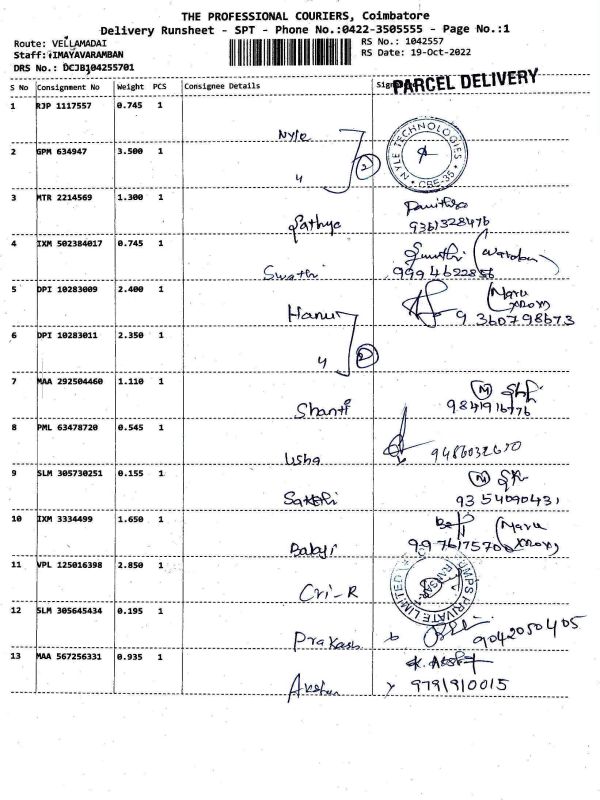 THE PROFESSIONAL COURIERS, Coimbatore
Delivery Runsheet - SPT - Phone No.:0422-3505555 - Page No.:1
Route: VELLAMADAI
RS No.: 1042557
Staff: IMAYAVARAMBAN
RS Date: 19-Oct-2022
DRS No.: DCJB104255701
PARCEL DELIVERY
S No Consignment No Weight PCS Consignee Details
1 RJP 1117557 0.745 1
Nyle
NYLE TECHNOLOGIES
CBE-35
2 GPM 634947 3.500 1
" 2
3 MTR 2214569 1.300 1
Sathya
9361328476
4 IXM 502384017 0.745 1
Swathi
9994622856
5 DPI 10283009 2.400 1
Hanu
9360798673
6 DPI 10283011 2.350 1
" 2
7 MAA 292504460 1.110 1
Shanti
9841916776
8 PML 63478720 0.545 1
Usha
9486032670
9 SLM 305730251 0.155 1
Sakthi
9354090431
10 IXM 3334499 1.650 1
Balaji
9976175700
11 VPL 125016398 2.850 1
Cri-R
PUMPS PRIVATE LIMITED
12 SLM 305645434 0.195 1
Prakash
9042050405
13 MAA 567256331 0.935 1
9791910015